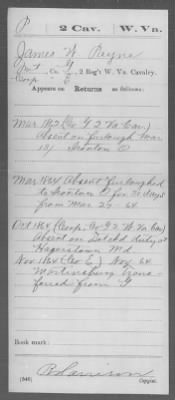 P 2 Cav. W. Va.
James W. Payne
Pvt G
Corp, Co. E, 2 Reg't W. Va. Cavalry.
Appears on Returns as follows:
Mar 1864 (Co G 2 Va Cav)
Absent on furlough Mar
Ironton O
Mar 1864 Absent furloughed
to Ironton O for 30 days
from Mar 64
Oct 1864 (Corp. Co G 2 W. Va Cav)
Absent on Detchd duty at
Hagerstown Md
Nov 1864 (Co E.) Nov 64
Martinsburg trans-
ferred from G
Book mark:
(546)
Copyist.